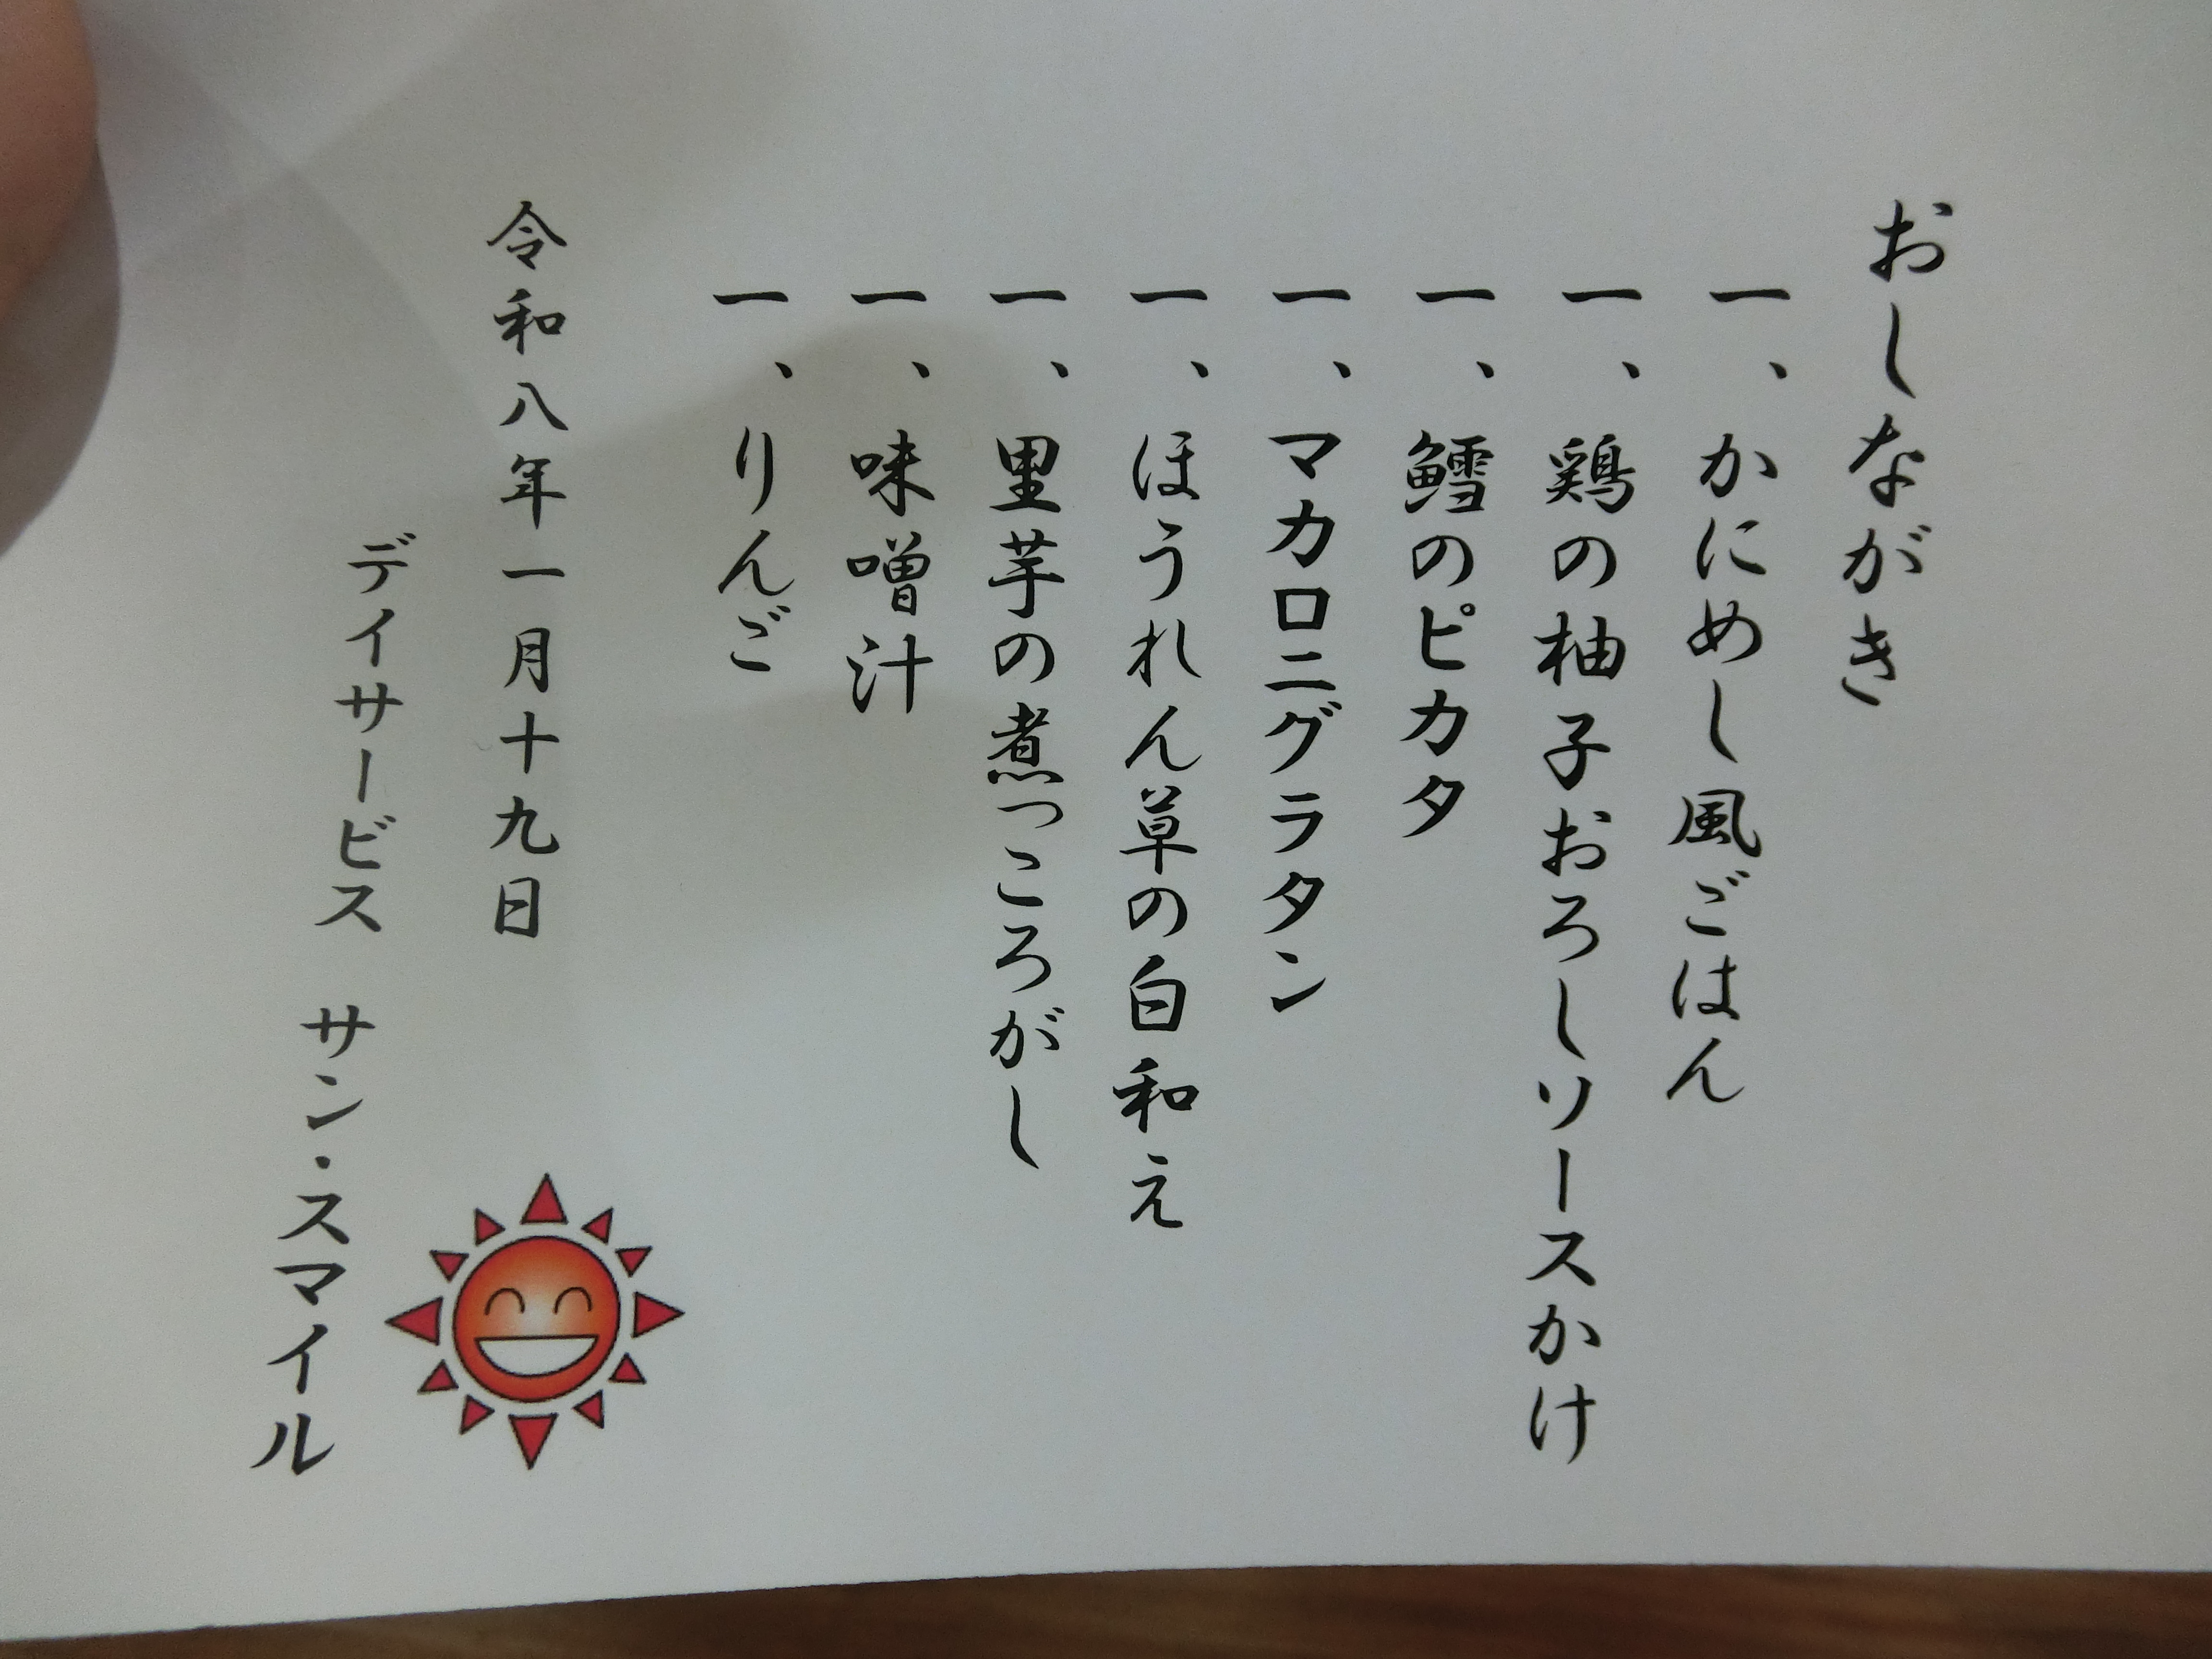 おしながき
一、かにめし風ごはん
一、鶏の柚子おろしソースかけ
一、鱈のピカタ
一、マカロニグラタン
一、ほうれん草の白和え
一、里芋の煮っころがし
一、味噌汁
一、りんご
令和八年一月十九日
デイサービス　サン・スマイル